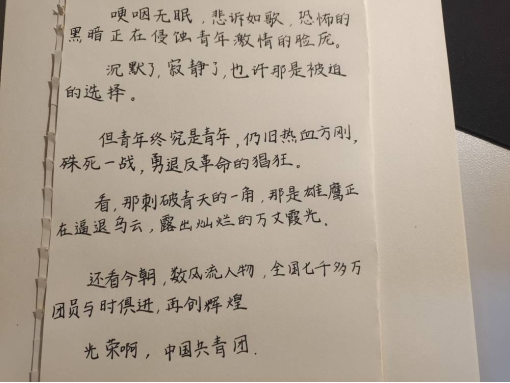 哽咽无眠，悲诉如歌，恐怖的
黑暗正在侵蚀青年激情的脸庞。
沉默了，寂静了，也许那是被迫
的选择。
但青年终究是青年，仍旧热血方刚，
殊死一战，勇退反革命的猖狂。
看，那刺破青天的一角，那是雄鹰正
在逼退乌云，露出灿烂的万丈霞光．
还看今朝，数风流人物，全国七千多万
团员与时俱进，再创辉煌
光荣啊，中国共青团．